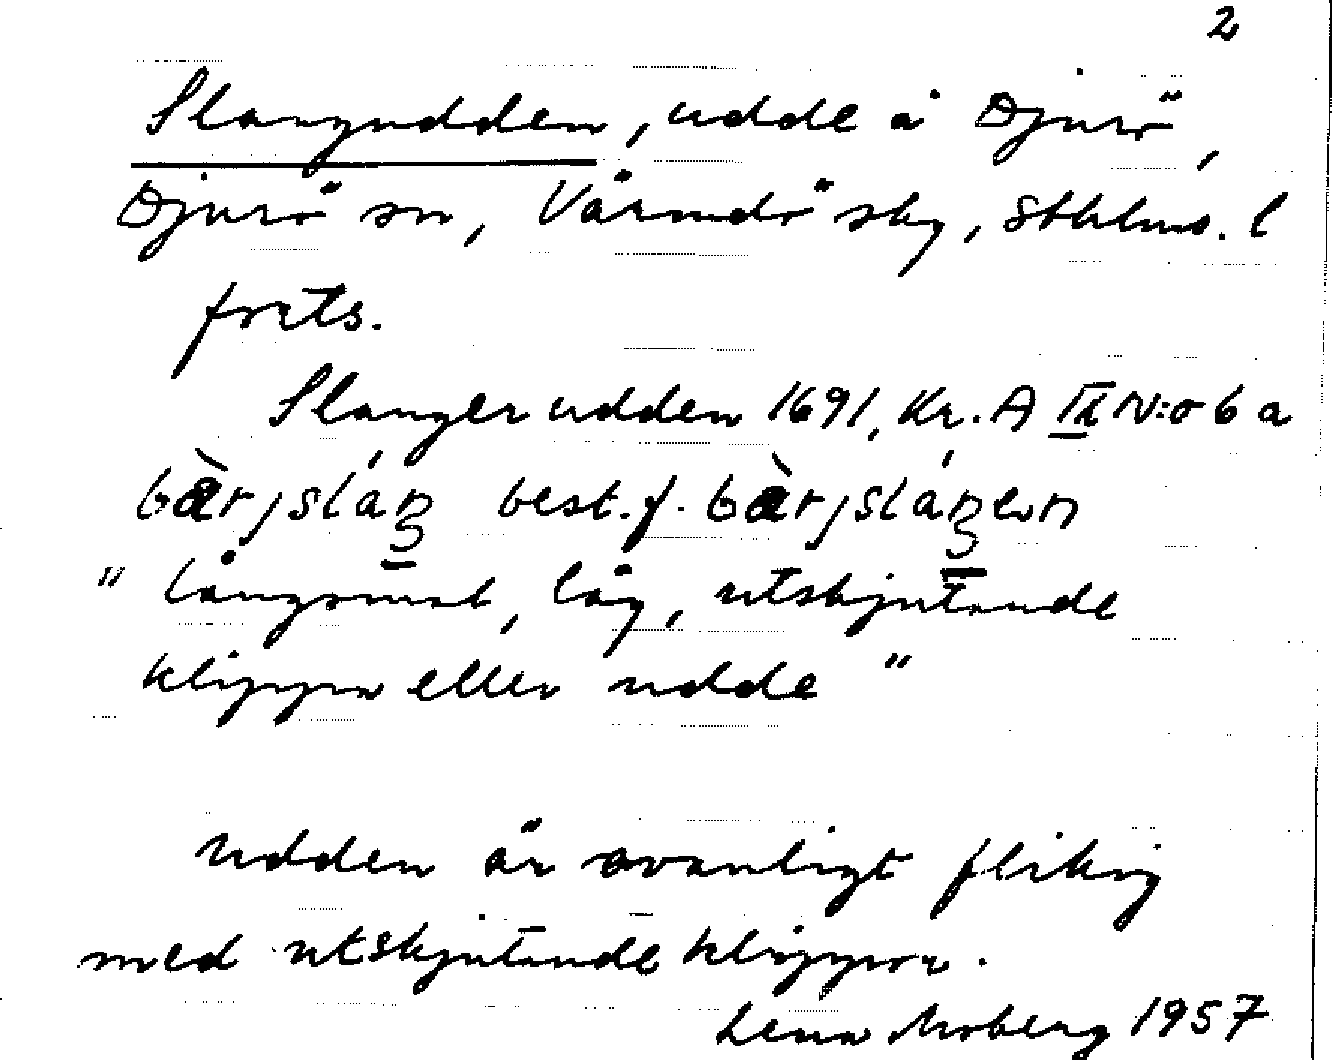 2
Slangudden, udde å Djurö,
Djurö sn, Värmdö skg, Sthlms. l
forts.
Slanger udden 1691, Kr. A IX N:o 6 a
bæ̀rjsláŋ best.f. bæ̀rjsláŋen
" långsmal, låg, utskjutande
klippa eller udde "
Udden är ovanligt flikig
med utskjutande klippor.
Lena Moberg 1957